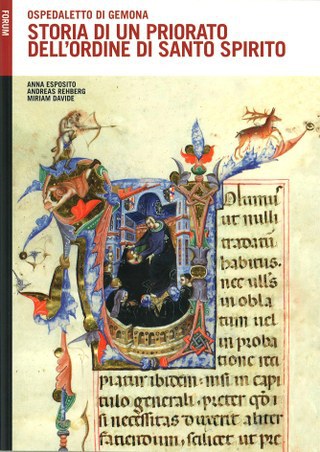 FORUM
OSPEDALETTO DI GEMONA
STORIA DI UN PRIORATO
DELL'ORDINE DI SANTO SPIRITO
ANNA ESPOSITO
ANDREAS REHBERG
MIRIAM DAVIDE
olumus
ut nulli
tradatur
habitus.
nec ulls in
obla
tum uel
in proba
tione reci
piatur ibidem. nisi in capi
tulo generali. preter
si necessitas duxerit aliter
faciendum. scilicet ut pre